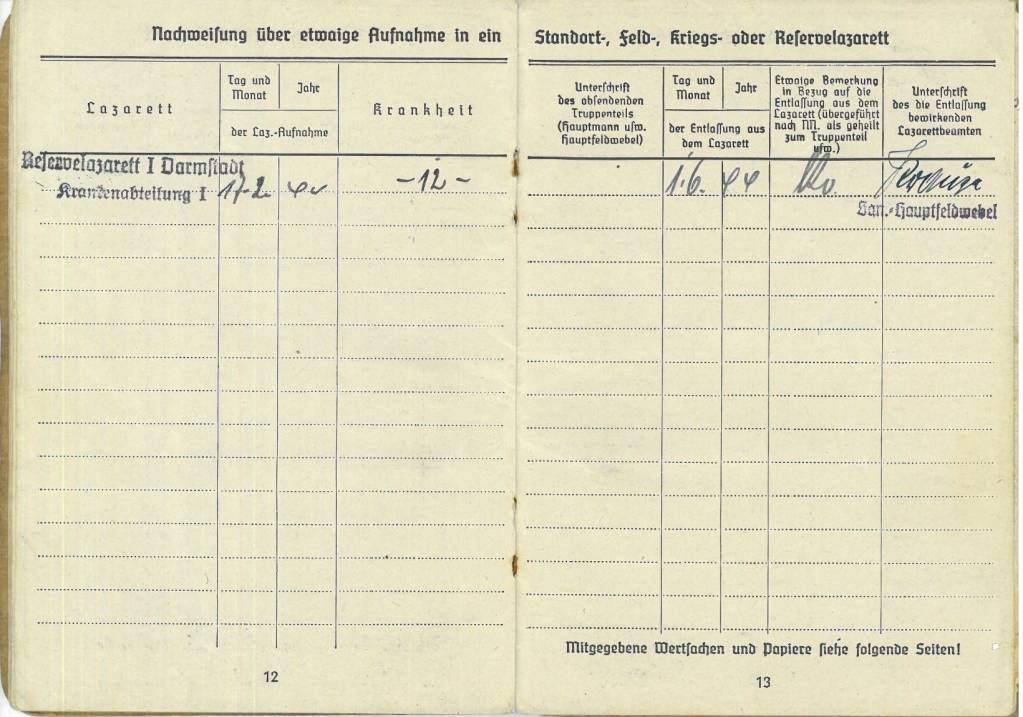 Nachweisung über etwaige Aufnahme in ein
Lazarett
Tag und
Monat
Jahr
der Laz.-Aufnahme
Krankheit
Reservelazarett I Darmstadt
Krankenabteilung I
17.2.
44
-12-
12
Standort-, Feld-, Kriegs- oder Reservelazarett
Unterschrift
des absendenden
Truppenteils
(Hauptmann usw.
Hauptfeldwebel)
Tag und
Monat
Jahr
der Entlassung aus
dem Lazarett
Etwaige Bemerkung
in Bezug auf die
Entlassung aus dem
Lazarett (übergeführt
nach NN. als geheilt
zum Truppenteil
usw.)
Unterschrift
des die Entlassung
bewirkenden
Lazarettbeamten
1.6.
44
kv
San.-Hauptfeldwebel
Mitgegebene Wertsachen und Papiere siehe folgende Seiten!
13